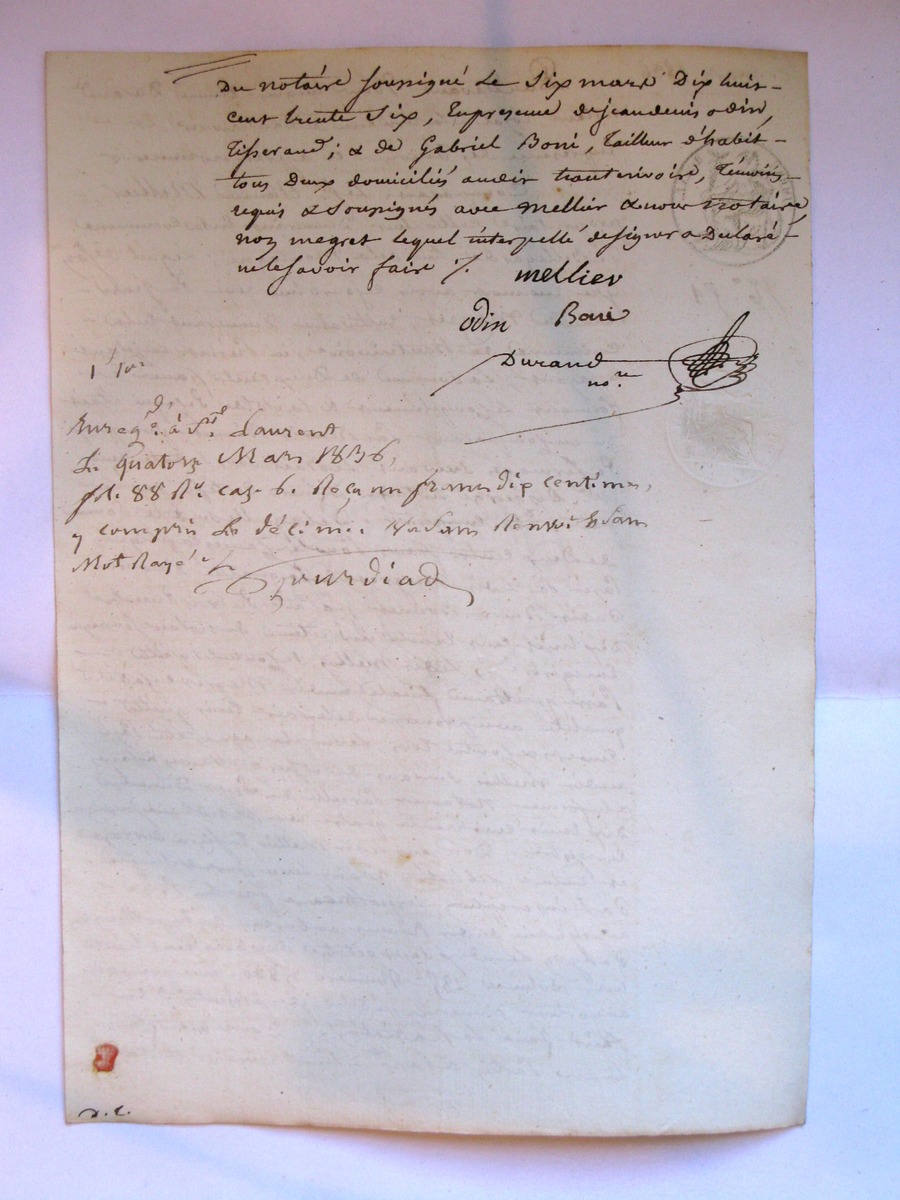 Du notaire soussigné Le Six mars Dix huit-
cent trente Six, En presence de jean denis odin,
Tisserand; & de Gabriel Boné, Tailleur d'habit-
tous Deux domiciliés audit hauterivoire, Témoins-
requis & Soussignés avec Mellier & nous notaire
non megret lequel interpellé de signer a Declaré-
ne le Savoir faire ./.
Mellier
odin Boné
Durand
no.re
Enreg.é à St. Laurent
Le quatorze Mars 1836,
fol. 88 Ro. case 6. Reçu un franc dix centimes,
y compris le décime. sans Renvoi & sans
Mot Rayé
D. L.